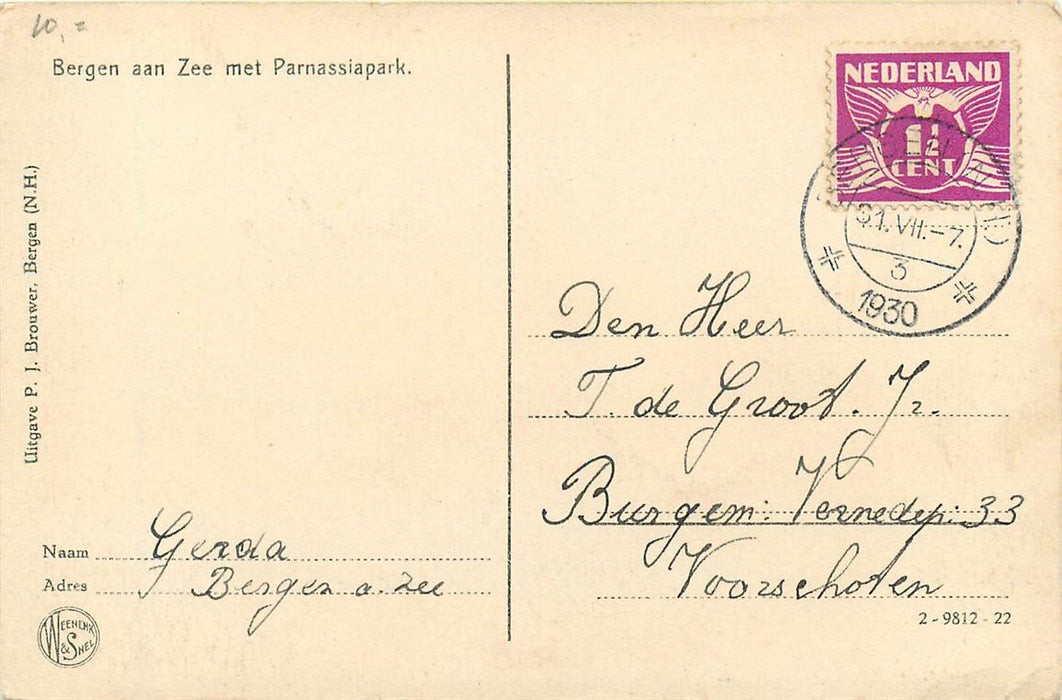 10,=
Bergen aan Zee met Parnassiapark.
Uitgave P. J. Brouwer, Bergen (N.H.)
NEDERLAND
1½
CENT
31.VII.-7.
3
1930
Den Heer
T. de Groot. Jr.
Burgem: Vernedep: 33
Voorschoten
Naam Gerda
Adres Bergen a. Zee
WEENENK
& SNEL
2-9812-22